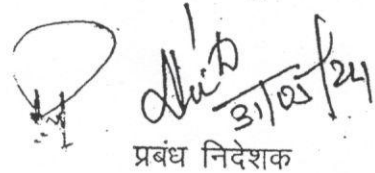 31/05/24
प्रबंध निदेशक